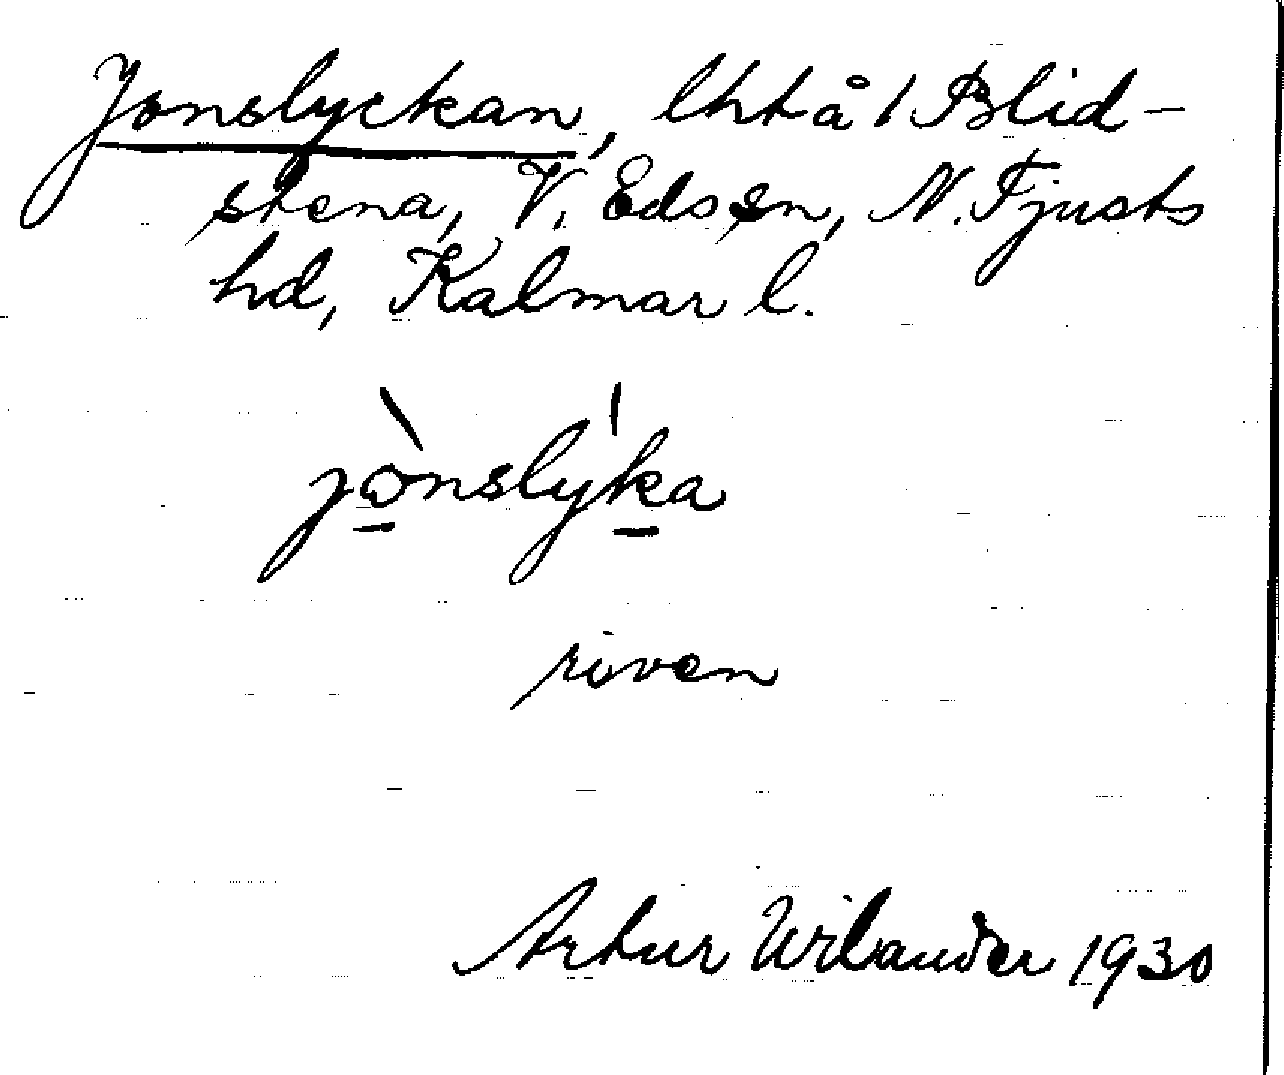 Jonslyckan, lht å 1 Blid-
stena, V. Eds sn, N. Tjusts
hd, Kalmar l.
jònslýka
riven
Artur Wilander 1930